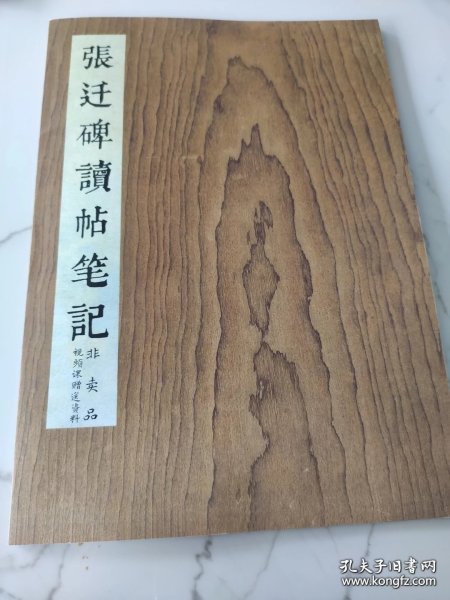 張迁碑讀帖笔記
非卖品
视频课赠送资料
孔夫子旧书网
www.kongfz.com